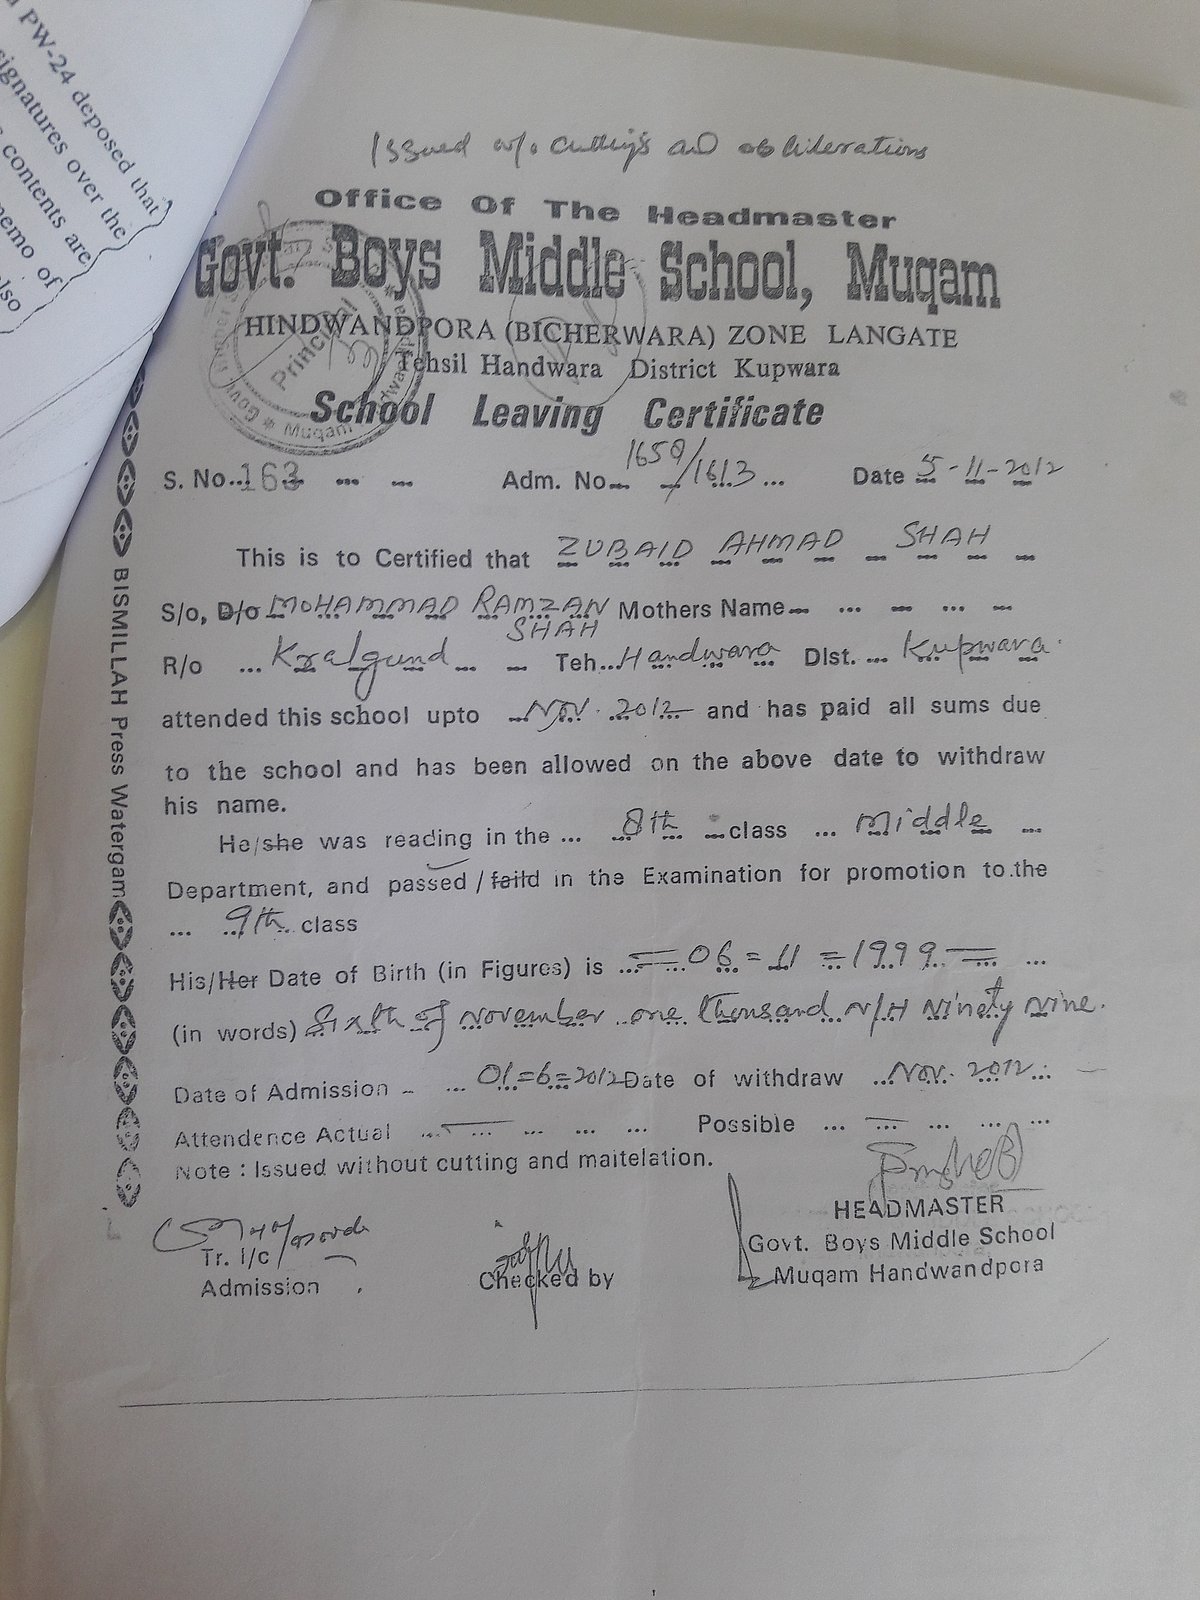 PW-24 deposed that
signatures over the
contents are
memo of
also
Issued w/o cuttings and obliterations
Office Of The Headmaster
Govt. Boys Middle School, Muqam
HINDWANDPORA (BICHERWARA) ZONE LANGATE
Tehsil Handwara District Kupwara
Principal
Muqam
School Leaving Certificate
S. No... 163 ... ... Adm. No... 1659/1613 ... Date 5-11-2012
This is to Certified that ZUBAID AHMAD SHAH
S/o, D/o MOHAMMAD RAMZAN SHAH Mothers Name ... ... ... ... ...
R/o ... Kralgund ... ... Teh... Handwara Dist. ... Kupwara.
attended this school upto ... Nov. 2012 and has paid all sums due
to the school and has been allowed on the above date to withdraw
his name.
He/she was reading in the ... 8th ... class ... Middle ...
Department, and passed / faild in the Examination for promotion to the
... 9th class
His/Her Date of Birth (in Figures) is ... = 06 = 11 = 1999 = ...
(in words) Sixth of November one thousand N/H Ninety Nine.
Date of Admission - ... 01=6=2012 Date of withdraw ... Nov. 2012 ...
Attendence Actual ... ... ... ... ... Possible ... ... ... ... ...
Note : Issued without cutting and maitelation.
Tr. I/c
Admission
Checked by
HEADMASTER
Govt. Boys Middle School
Muqam Handwandpora
BISMILLAH Press Watergam